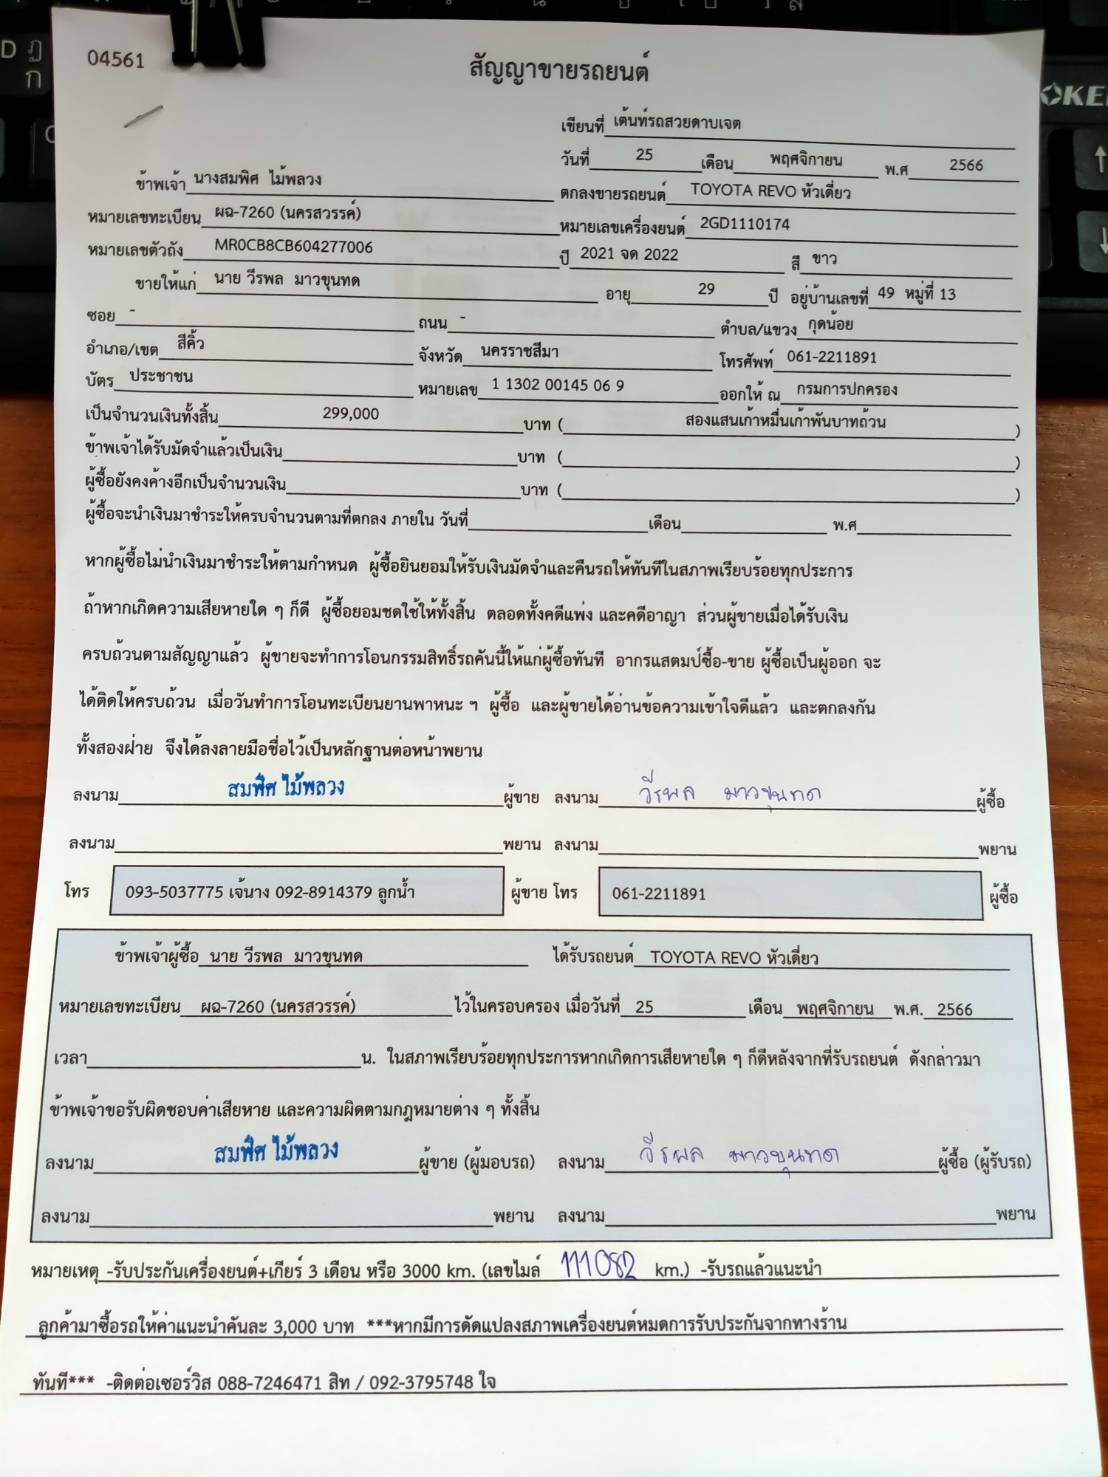 04561
สัญญาขายรถยนต์
เขียนที่ เต้นท์รถสวยดาบเจต
วันที่ 25 เดือน พฤศจิกายน พ.ศ 2566
ข้าพเจ้า นางสมพิศ ไม้พลวง ตกลงขายรถยนต์ TOYOTA REVO หัวเดี่ยว
หมายเลขทะเบียน ผฉ-7260 (นครสวรรค์) หมายเลขเครื่องยนต์ 2GD1110174
หมายเลขตัวถัง MR0CB8CB604277006 ปี 2021 จด 2022 สี ขาว
ขายให้แก่ นาย วีรพล มาวขุนทด อายุ 29 ปี อยู่บ้านเลขที่ 49 หมู่ที่ 13
ซอย - ถนน - ตำบล/แขวง กุดน้อย
อำเภอ/เขต สีคิ้ว จังหวัด นครราชสีมา โทรศัพท์ 061-2211891
บัตร ประชาชน หมายเลข 1 1302 00145 06 9 ออกให้ ณ กรมการปกครอง
เป็นจำนวนเงินทั้งสิ้น 299,000 บาท ( สองแสนเก้าหมื่นเก้าพันบาทถ้วน )
ข้าพเจ้าได้รับมัดจำแล้วเป็นเงิน บาท ( )
ผู้ซื้อยังคงค้างอีกเป็นจำนวนเงิน บาท ( )
ผู้ซื้อจะนำเงินมาชำระให้ครบจำนวนตามที่ตกลง ภายใน วันที่ เดือน พ.ศ
หากผู้ซื้อไม่นำเงินมาชำระให้ตามกำหนด ผู้ซื้อยินยอมให้รับเงินมัดจำและคืนรถให้ทันทีในสภาพเรียบร้อยทุกประการ
ถ้าหากเกิดความเสียหายใด ๆ ก็ดี ผู้ซื้อยอมชดใช้ให้ทั้งสิ้น ตลอดทั้งคดีแพ่ง และคดีอาญา ส่วนผู้ขายเมื่อได้รับเงิน
ครบถ้วนตามสัญญาแล้ว ผู้ขายจะทำการโอนกรรมสิทธิ์รถคันนี้ให้แก่ผู้ซื้อทันที อากรแสตมป์ซื้อ-ขาย ผู้ซื้อเป็นผู้ออก จะ
ได้ติดให้ครบถ้วน เมื่อวันทำการโอนทะเบียนยานพาหนะ ฯ ผู้ซื้อ และผู้ขายได้อ่านข้อความเข้าใจดีแล้ว และตกลงกัน
ทั้งสองฝ่าย จึงได้ลงลายมือชื่อไว้เป็นหลักฐานต่อหน้าพยาน
ลงนาม สมพิศ ไม้พลวง ผู้ขาย ลงนาม วีรพล มาวขุนทด ผู้ซื้อ
ลงนาม พยาน ลงนาม พยาน
โทร 093-5037775 เจ้นาง 092-8914379 ลูกน้ำ ผู้ขาย โทร 061-2211891 ผู้ซื้อ
ข้าพเจ้าผู้ซื้อ นาย วีรพล มาวขุนทด ได้รับรถยนต์ TOYOTA REVO หัวเดี่ยว
หมายเลขทะเบียน ผฉ-7260 (นครสวรรค์) ไว้ในครอบครอง เมื่อวันที่ 25 เดือน พฤศจิกายน พ.ศ. 2566
เวลา น. ในสภาพเรียบร้อยทุกประการหากเกิดการเสียหายใด ๆ ก็ดีหลังจากที่รับรถยนต์ ดังกล่าวมา
ข้าพเจ้าขอรับผิดชอบค่าเสียหาย และความผิดตามกฎหมายต่าง ๆ ทั้งสิ้น
ลงนาม สมพิศ ไม้พลวง ผู้ขาย (ผู้มอบรถ) ลงนาม วีรพล มาวขุนทด ผู้ซื้อ (ผู้รับรถ)
ลงนาม พยาน ลงนาม พยาน
หมายเหตุ -รับประกันเครื่องยนต์+เกียร์ 3 เดือน หรือ 3000 km. (เลขไมล์ 111082 km.) -รับรถแล้วแนะนำ
ลูกค้ามาซื้อรถให้ค่าแนะนำคันละ 3,000 บาท ***หากมีการดัดแปลงสภาพเครื่องยนต์หมดการรับประกันจากทางร้าน
ทันที*** -ติดต่อเซอร์วิส 088-7246471 สิท / 092-3795748 ใจ